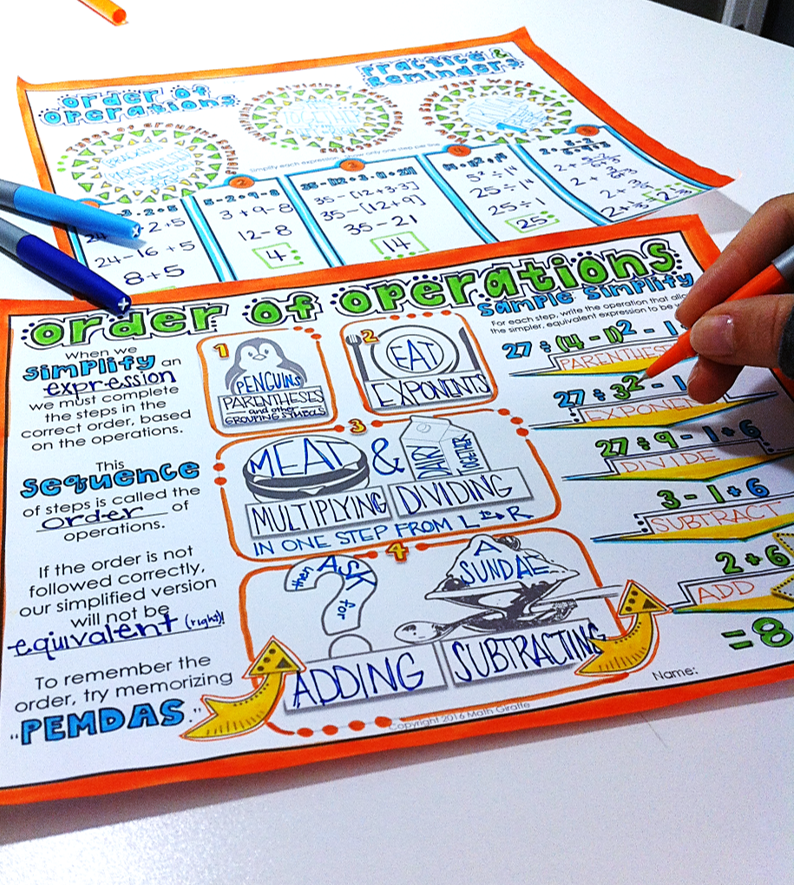 Order of
Operations
Practice &
Reminders
Simplify each expression
only one step per line
2
3
4
5
24-16+5
8+5
5-2+9-8
3+9-8
12-8
4
35-[12+3·3]
35-[12+9]
35-21
14
5²÷1⁴
25÷1⁴
25÷1
25
Order of Operations
When we
simplify an
expression
we must complete
the steps in the
correct order, based
on the operations.
This
sequence
of steps is called the
order of
operations.
If the order is not
followed correctly,
our simplified version
will not be
equivalent (right)!
To remember the
order, try memorizing
"PEMDAS."
1
PENGUINS
PARENTHESES
and other
GROUPING SYMBOLS
2
EAT
EXPONENTS
3
MEAT & DAIRY TOGETHER
MULTIPLYING DIVIDING
IN ONE STEP FROM L → R
4
then ASK for
A SUNDAE
ADDING SUBTRACTING
Copyright 2016 Math Giraffe
Sample Simplify
For each step, write the operation that
the simpler, equivalent expression to be
27÷(4-1)²-1
27÷3²-1
27÷9-1+6
DIVIDE
3-1+6
SUBTRACT
2+6
ADD
=8
Name: